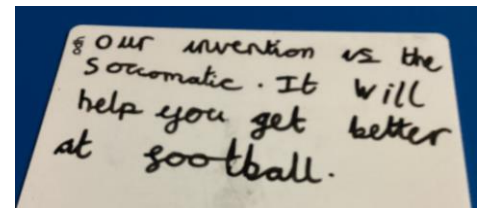 our invention is the
Soccomatic. It will
help you get better
at football.